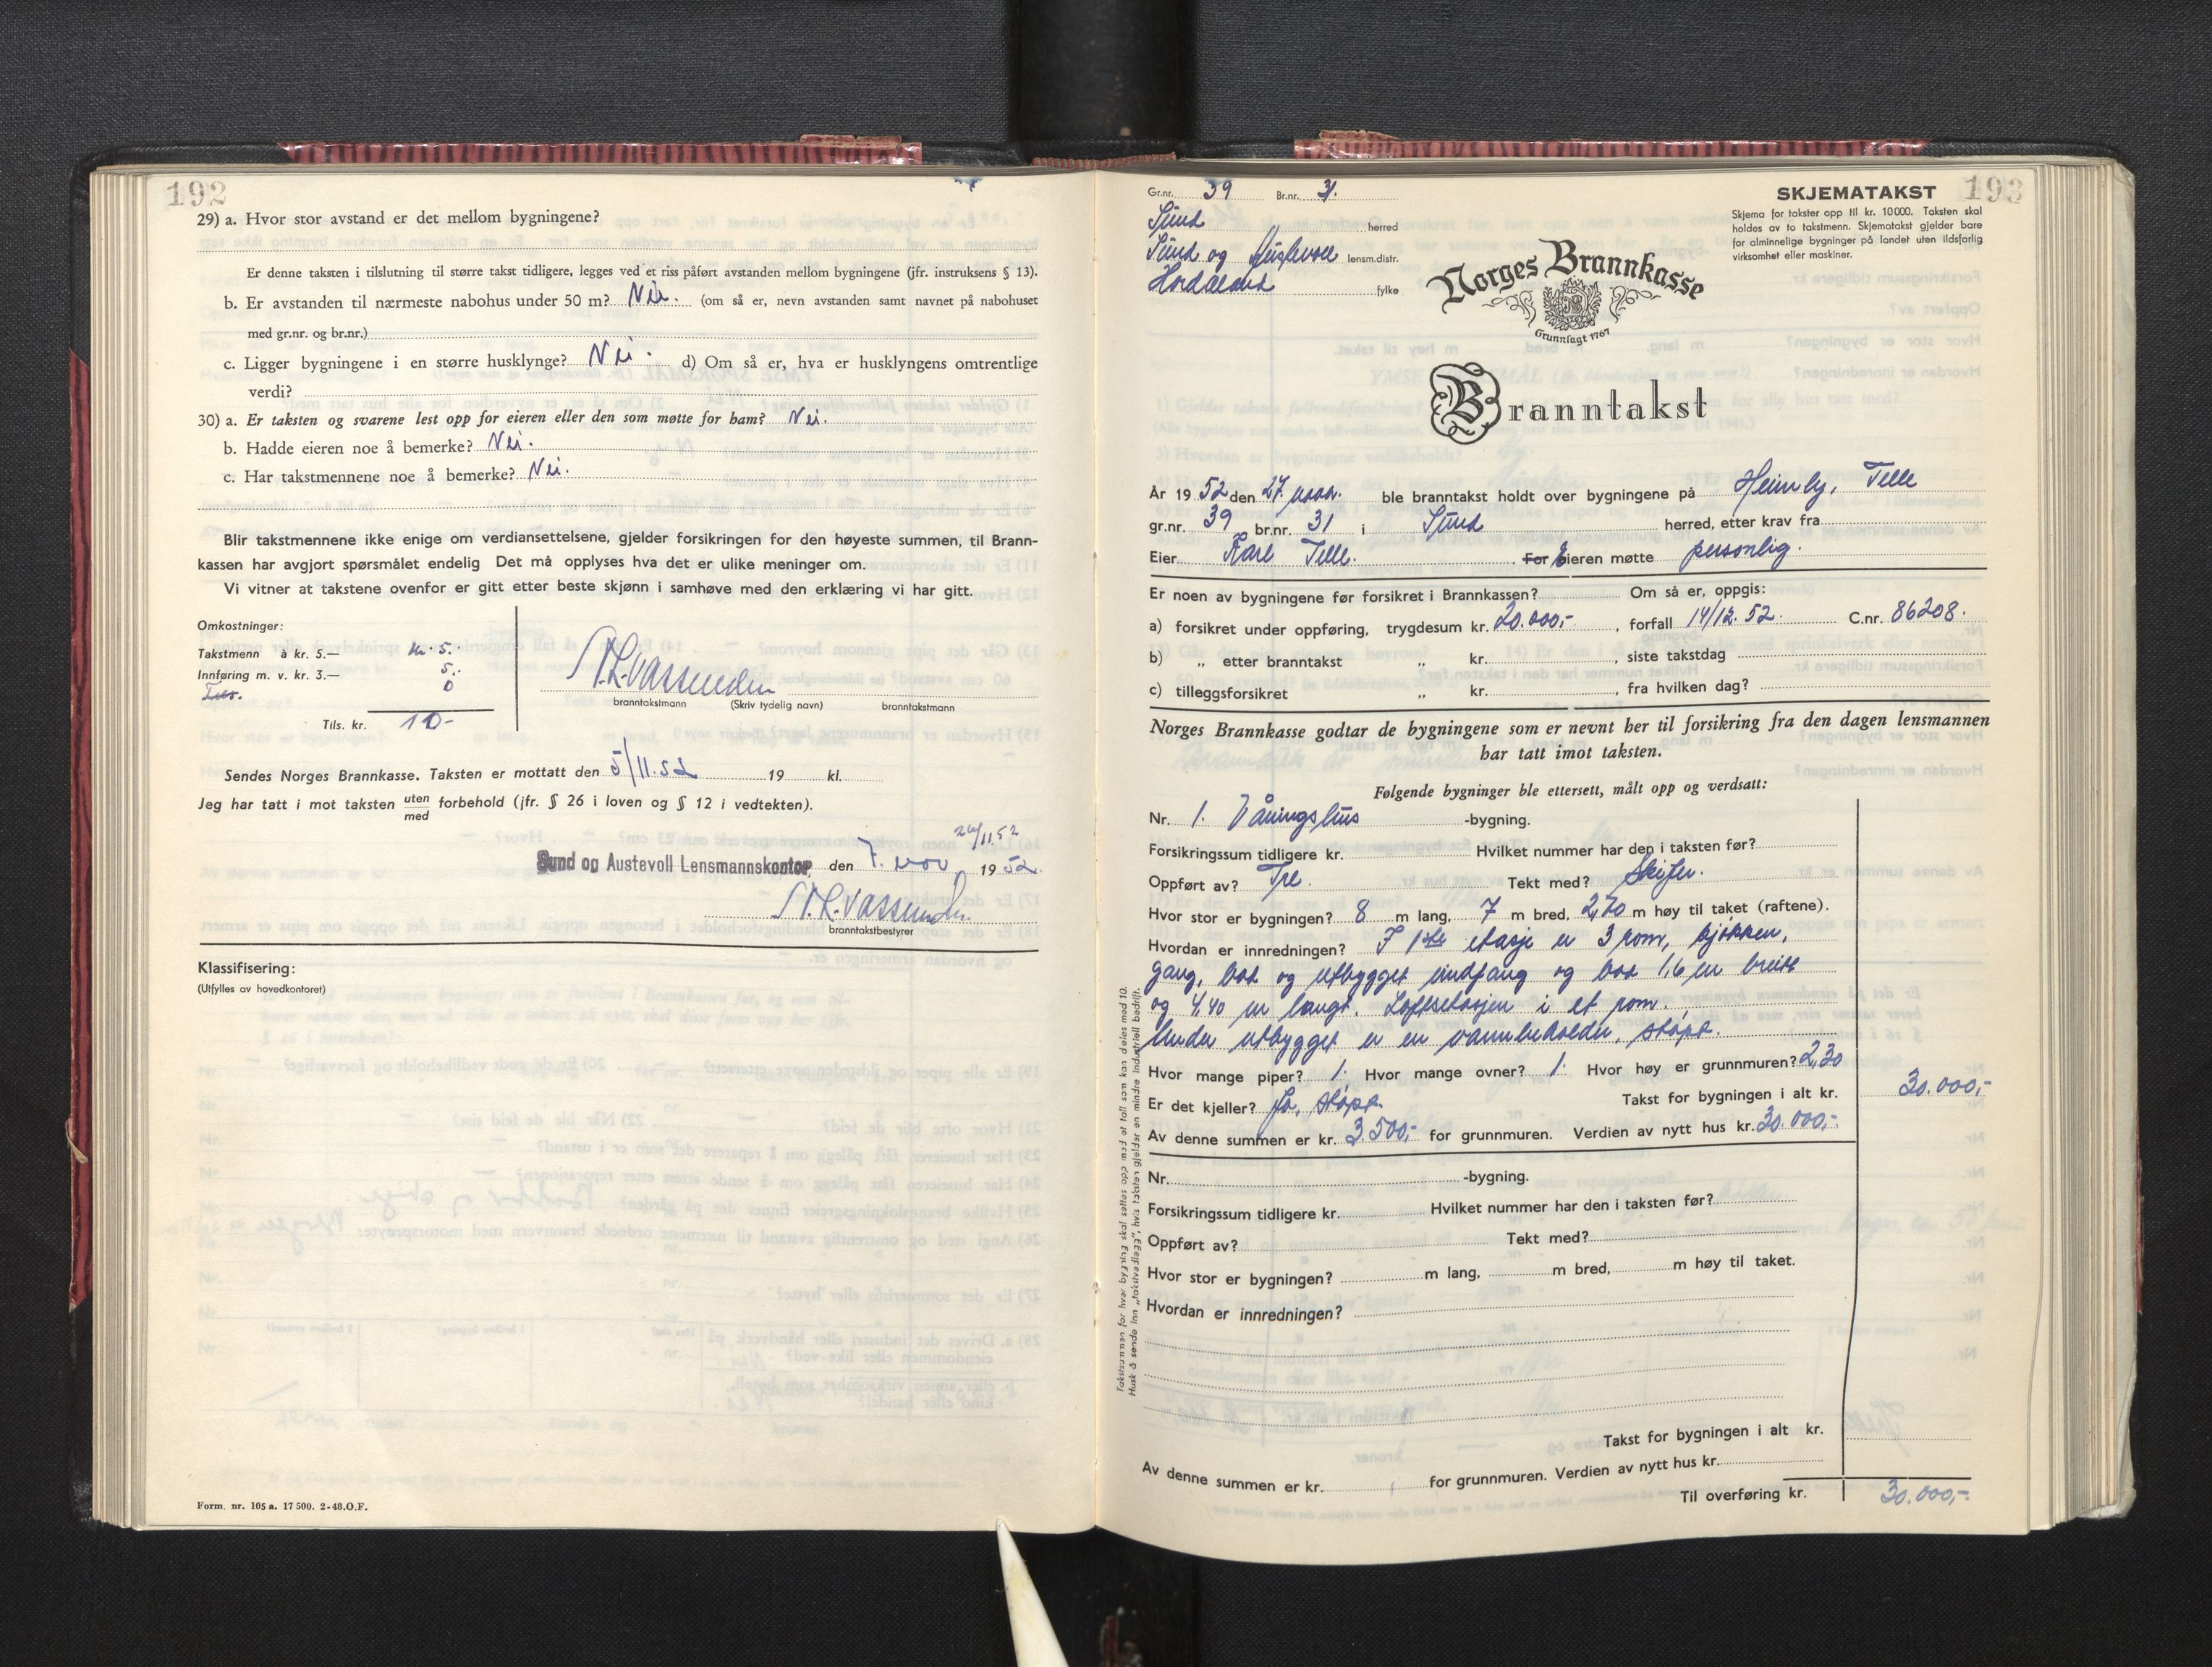 192
29) a. Hvor stor avstand er det mellom bygningene?
Er denne taksten i tilslutning til større takst tidligere, legges ved et riss påført avstanden mellom bygningene (jfr. instruksens § 13).
b. Er avstanden til nærmeste nabohus under 50 m? Nei. (om så er, nevn avstanden samt navnet på nabohuset
med gr.nr. og br.nr.)
c. Ligger bygningene i en større husklynge? Nei. d) Om så er, hva er husklyngens omtrentlige
verdi?
30) a. Er taksten og svarene lest opp for eieren eller den som møtte for ham? Nei.
b. Hadde eieren noe å bemerke? Nei.
c. Har takstmennene noe å bemerke? Nei.
Blir takstmennene ikke enige om verdiansettelsene, gjelder forsikringen for den høyeste summen, til Brann-
kassen har avgjort spørsmålet endelig Det må opplyses hva det er ulike meninger om.
Vi vitner at takstene ovenfor er gitt etter beste skjønn i samhøve med den erklæring vi har gitt.
Omkostninger:
Takstmenn à kr. 5.— kr. 5.-
Innføring m. v. kr. 3.— 5.-
0
Tils. kr. 10-
branntakstmann (Skriv tydelig navn) branntakstmann
Sendes Norges Brannkasse. Taksten er mottatt den 5/11.52 19 kl.
Jeg har tatt i mot taksten uten forbehold (jfr. § 26 i loven og § 12 i vedtekten).
med
26/11.52
Sund og Austevoll Lensmannskontor, den 7. nov 1952.
branntakstbestyrer
Klassifisering:
(Utfylles av hovedkontoret)
Form. nr. 105 a. 17 500. 2-48.O.F.
193
Gr.nr. 39 Br.nr. 31.
Sund herred
Sund og Austevoll lensm.distr.
Hordaland fylke
SKJEMATAKST
Skjema for takster opp til kr. 10000. Taksten skal
holdes av to takstmenn. Skjematakst gjelder bare
for alminnelige bygninger på landet uten ildsfarlig
virksomhet eller maskiner.
Norges Brannkasse
Grunnlagt 1767
Branntakst
År 1952 den 27. ble branntakst holdt over bygningene på Heimly, Telle
gr.nr. 39 br.nr. 31 i Sund herred, etter krav fra
Eier Karl Telle. For Eieren møtte personlig.
Er noen av bygningene før forsikret i Brannkassen? Om så er, oppgis:
a) forsikret under oppføring, trygdesum kr. 20.000,-, forfall 14/12.52. C.nr. 86208.
b) „ etter branntakst „ kr. , siste takstdag
c) tilleggsforsikret „ kr. , fra hvilken dag?
Norges Brannkasse godtar de bygningene som er nevnt her til forsikring fra den dagen lensmannen
har tatt imot taksten.
Følgende bygninger ble ettersett, målt opp og verdsatt:
Nr. 1. Våningshus -bygning.
Forsikringssum tidligere kr. Hvilket nummer har den i taksten før?
Oppført av? Tre Tekt med? Skifer.
Hvor stor er bygningen? 8 m lang, 7 m bred, 2,70 m høy til taket (raftene).
Hvordan er innredningen? I 1ste etasje er 3 rom, kjøkken,
gang, bod og utbygget vindfang og bod 1,6 m breitt
og 4,40 m langt. Loftsetasjen i et rom.
Under utbygget er en vannbeholder, støpt.
Hvor mange piper? 1. Hvor mange ovner? 1. Hvor høy er grunnmuren? 2,30
Er det kjeller? Ja, støpt. Takst for bygningen i alt kr. 30.000,-
Av denne summen er kr. 3.500,- for grunnmuren. Verdien av nytt hus kr. 30.000,-
Nr. -bygning.
Forsikringssum tidligere kr. Hvilket nummer har den i taksten før?
Oppført av? Tekt med?
Hvor stor er bygningen? m lang, m bred, m høy til taket.
Hvordan er innredningen?
Takst for bygningen i alt kr.
Av denne summen er kr. for grunnmuren. Verdien av nytt hus kr.
Til overføring kr. 30.000,-
Takstsummen for hver bygning skal settes opp med et tall som kan deles med 10.